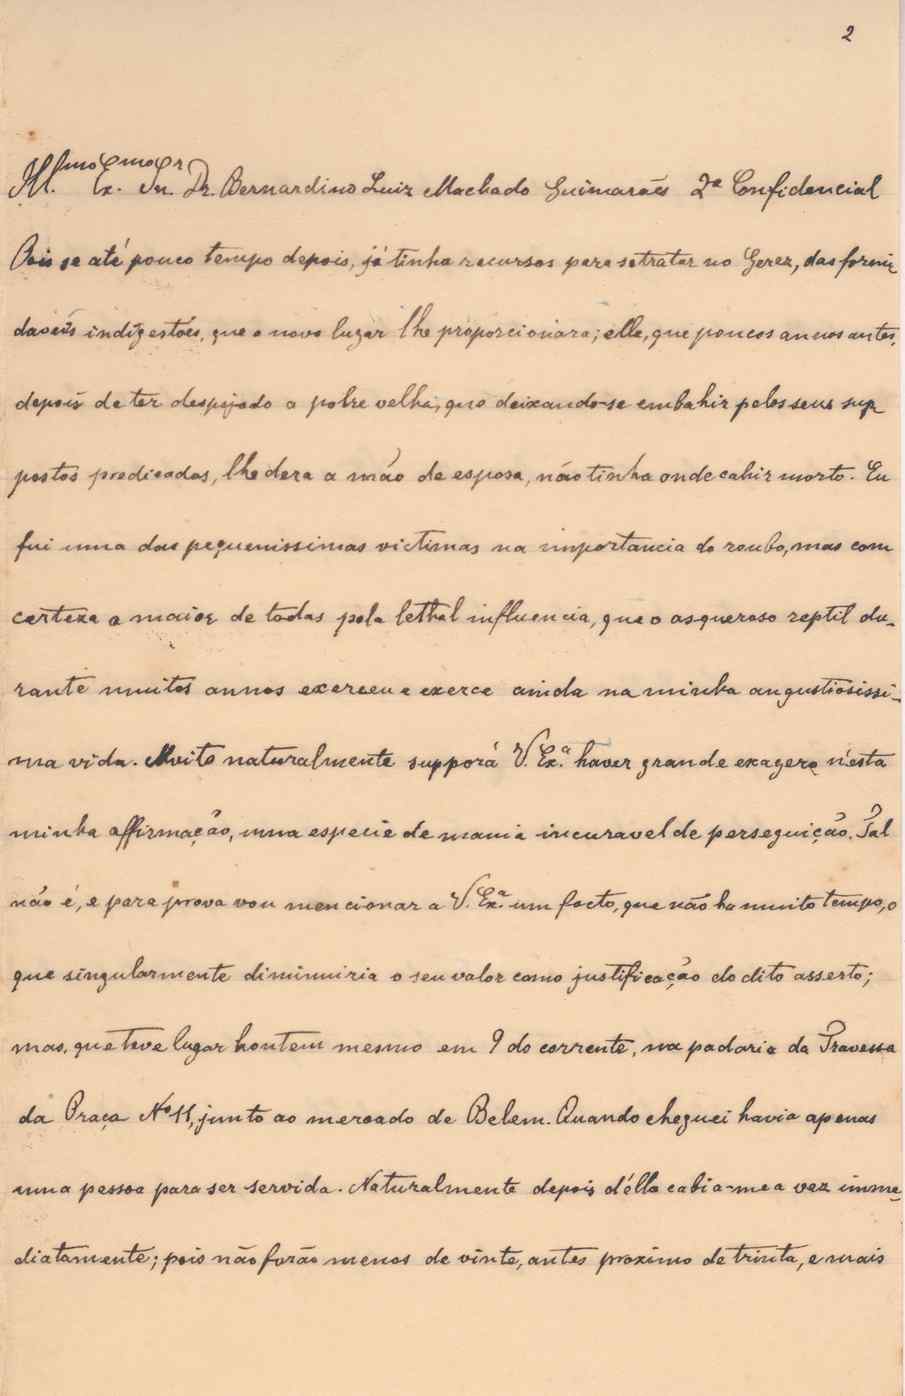 2
Ill.mo Ex.mo Snr. Dr. Bernardino Luiz Machado Guimarães 2ª Confidencial
Pois se até pouco tempo depois, já tinha recursos para se tratar no Gerez, das formi-
daveis indigestões, que o novo lugar lhe proporcionara; elle, que poucos annos antes,
depois de ter despojado a pobre velha, que deixando-se embahir pelos seus sup-
postos predicados, lhe dera a mão de esposa, não tinha onde cahir morto. Eu
fui uma das pequenissimas victimas na importancia do roubo, mas com
certeza a maior de todas pela lethal influencia, que o asqueroso reptil du-
rante muitos annos exerceu e exerce ainda na minha angustiosissi-
ma vida. Muito naturalmente supporá V. Ex.ª haver grande exagero n'esta
minha affirmação, uma especie de mania incuravel de perseguição. Tal
não é, e para prova vou mencionar a V. Ex.ª um facto, que não ha muito tempo, o
que singularmente diminuiria o seu valor como justificação do dito asserto;
mas, que teve lugar hontem mesmo em 9 do corrente, na padaria da Travessa
da Praça Nº 11, junto ao mercado de Belem. Quando cheguei havia apenas
uma pessoa para ser servida. Naturalmente depois d'élla cabia-me a vez imme-
diatamente; pois não forão menos de vinte, antes proximo de trinta, e mais